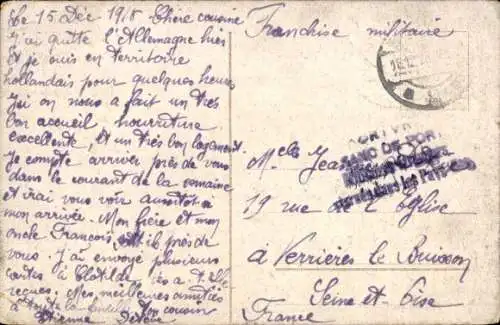 Le 15 Déc 1918 Chère cousine
J'ai quitté l'Allemagne hier
et je suis en territoire
hollandais pour quelques heures
Ici on nous a fait un très
bon accueil, nourriture
excellente, et un très bon logement.
Je compte arriver près de vous
dans le courant de la semaine
et irai vous voir aussitôt
mon arrivée. Mon frère et mon
oncle François près de
vous. J'ai envoyé plusieurs
cartes à Clotilde
reçues. Mes meilleures amitiés
à toute la famille. Ton cousin
Etienne
Franchise militaire
Melle
19 rue de l'Eglise
à Verrières le Buisson
Seine et Oise
France